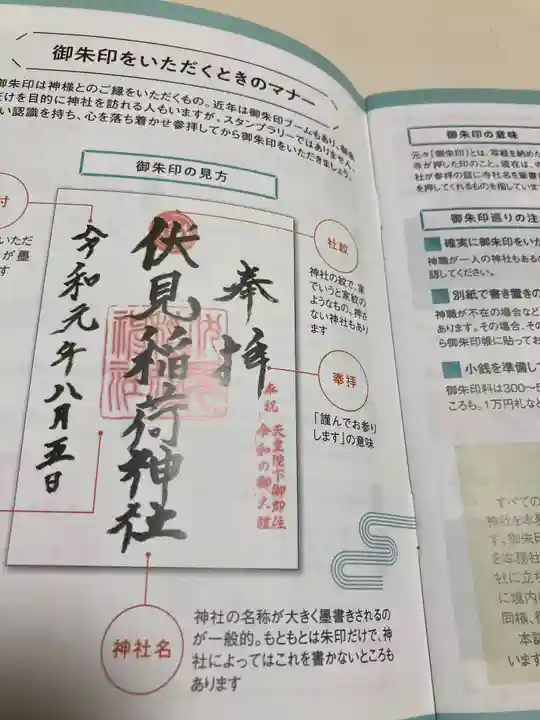 御朱印をいただくときのマナー
御朱印は神様とのご縁をいただくもの。近年は御朱印ブームもあり、御朱
だけを目的に神社を訪れる人もいますが、スタンプラリーではありません。
い認識を持ち、心を落ち着かせ参拝してから御朱印をいただきましょう。
御朱印の見方
付
いただ
が墨
す
令和元年八月五日
伏見稲荷神社
奉拝
奉祝 天皇陛下御即位
令和の御大禮
社紋
神社の紋で、家
でいうと家紋の
ようなもの。押さ
ない神社もあり
ます
奉拝
「謹んでお参り
します」の意味
神社名
神社の名称が大きく墨書きされるの
が一般的。もともとは朱印だけで、神
社によってはこれを書かないところも
あります
御朱印の意味
元々「御朱印」とは、写経を納めた
寺が押した印のこと。現在は、
社が参拝の証に寺社名を墨書
を押してくれるものを指しています
御朱印巡りの注
確実に御朱印をいた
神職が一人の神社もあるの
認してください。
別紙で書き置きの
神職が不在の場合など
あります。その場合、その
ら御朱印帳に貼ってお
小銭を準備して
御朱印料は300〜5
ころも。1万円札など
すべての
神社を本
す。御朱印
を本務社
社に立ち
に境内
同様、
本誌
います